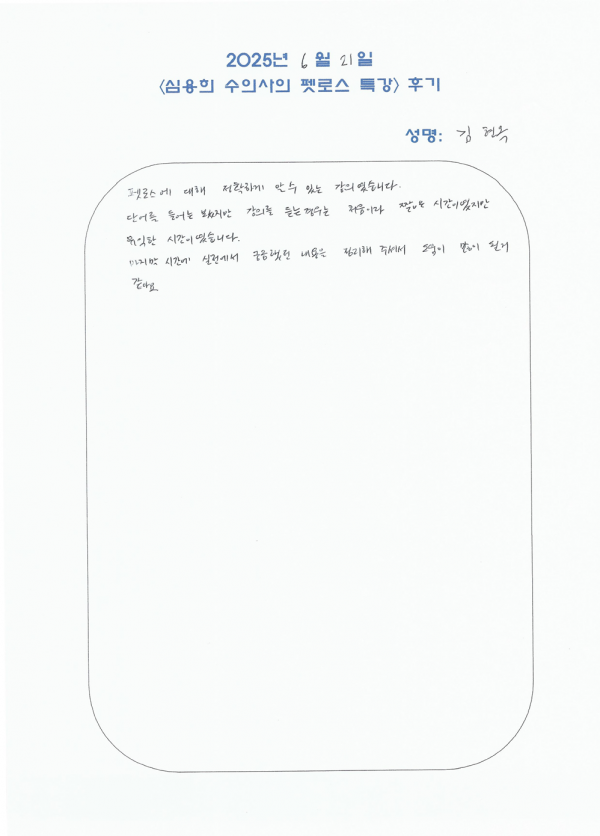 2025년 6월 21일
〈심용희 수의사의 펫로스 특강〉 후기
성명: 김현옥
펫로스에 대해 정확하게 알 수 있는 강의였습니다.
단어를 들어는 봤지만 강의를 듣는 경우는 처음이라 짧은 시간이였지만
유익한 시간이였습니다.
마지막 시간에 실전에서 궁금했던 내용은 정리해 주셔서 도움이 많이 될거
같아요.